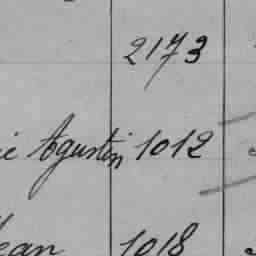 2173
Agustin 1012
1018